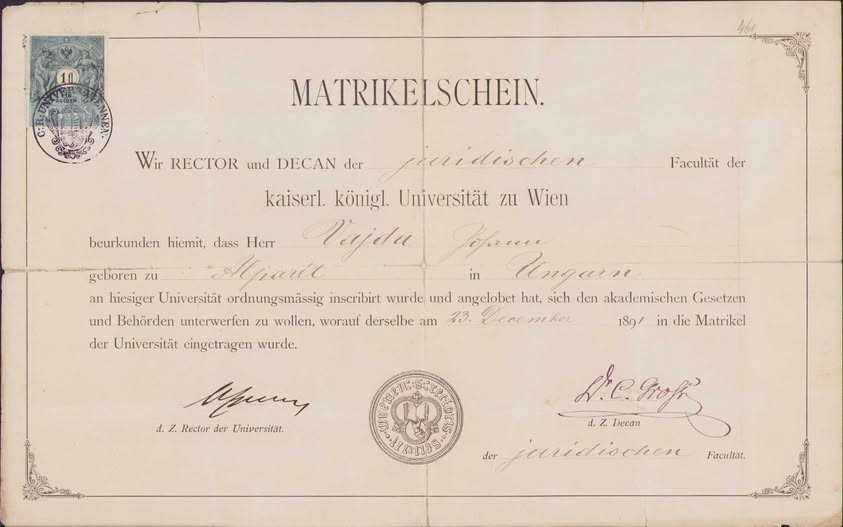 461
10
MATRIKELSCHEIN.
Wir RECTOR und DECAN der juridischen Facultät der
kaiserl. königl. Universität zu Wien
beurkunden hiemit, dass Herr Vajda Johann
geboren zu Alparét in Ungarn
an hiesiger Universität ordnungsmässig inscribirt wurde und angelobet hat, sich den akademischen Gesetzen
und Behörden unterwerfen zu wollen, worauf derselbe am 23. December 1891 in die Matrikel
der Universität eingetragen wurde.
d. Z. Rector der Universität.
Dr. C. Groß
d. Z. Decan
der juridischen Facultät.